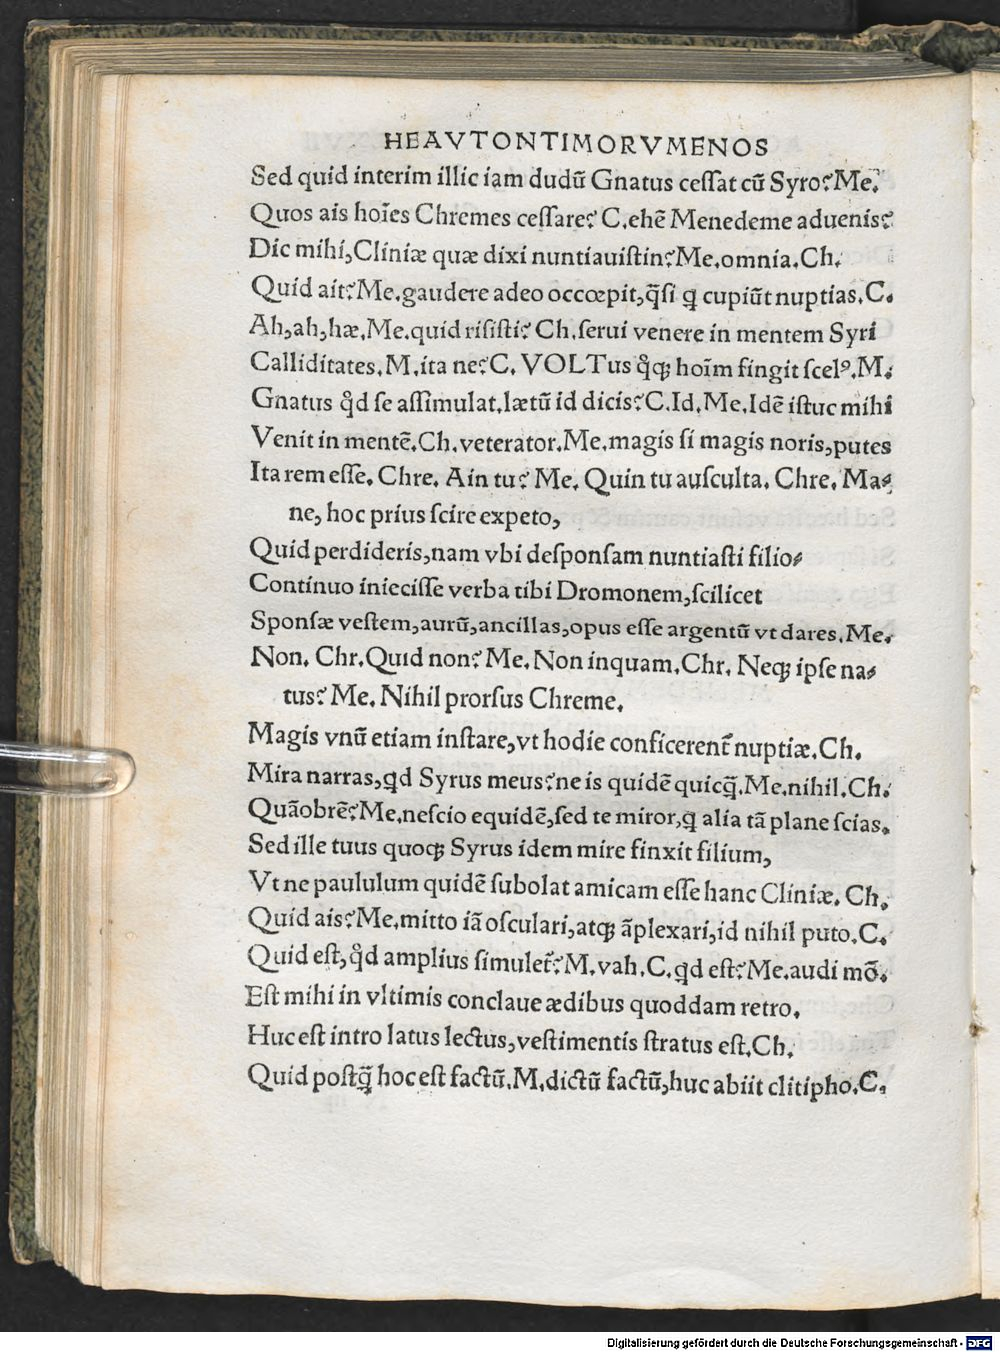 HEAVTONTIMORVMENOS
Sed quid interim illic iam dudū Gnatus ceſſat cū Syro? Me.
Quos ais hoīes Chremes ceſſare? C.ehē Menedeme aduenis?
Dic mihi,Cliniæ quæ dixi nuntiauiſtin? Me.omnia.Ch.
Quid ait? Me.gaudere adeo occœpit,q̄ſi ꝗ cupiūt nuptias.C.
Ah,ah,hæ.Me.quid riſiſti? Ch.ſerui venere in mentem Syri
Calliditates.M.ita ne? C. VOLTus qͦqꝫ hoīm fingit ſcelꝰ.M.
Gnatus qͦd ſe aſſimulat.lætū id dicis? C.Id.Me.Idē iſtuc mihi
Venit in mentē.Ch.veterator.Me.magis ſi magis noris,putes
Ita rem eſſe. Chre. Ain tu? Me. Quin tu auſculta. Chre. Ma⸗
ne, hoc prius ſcire expeto,
Quid perdideris,nam vbi deſponſam nuntiaſti filio⸗
Continuo inieciſſe verba tibi Dromonem,ſcilicet
Sponſæ veſtem,aurū,ancillas,opus eſſe argentū vt dares.Me.
Non. Chr.Quid non? Me. Non inquam.Chr. Neqꝫ ipſe na⸗
tus? Me. Nihil prorſus Chreme.
Magis vnū etiam inſtare,vt hodie conficerent᷑ nuptiæ.Ch.
Mira narras,ꝗd Syrus meus? ne is quidē quicꝗ̄.Me.nihil.Ch.
Quāobrē? Me.neſcio equidē,ſed te miror,ꝗ alia tā plane ſcias.
Sed ille tuus quoqꝫ Syrus idem mire finxit filium,
Vt ne paululum quidē ſubolat amicam eſſe hanc Cliniæ. Ch.
Quid ais? Me.mitto iā oſculari,atqꝫ āplexari,id nihil puto.C.
Quid eſt,qͦd amplius ſimulet᷑? M.vah.C.ꝗd eſt? Me.audi mō.
Eſt mihi in vltimis conclaue ædibus quoddam retro.
Huc eſt intro latus lectus,veſtimentis ſtratus eſt.Ch.
Quid poſtꝗ̄ hoc eſt factū.M.dictū factū,huc abiit clitipho.C.
Digitalisierung gefördert durch die Deutsche Forschungsgemeinschaft - DFG